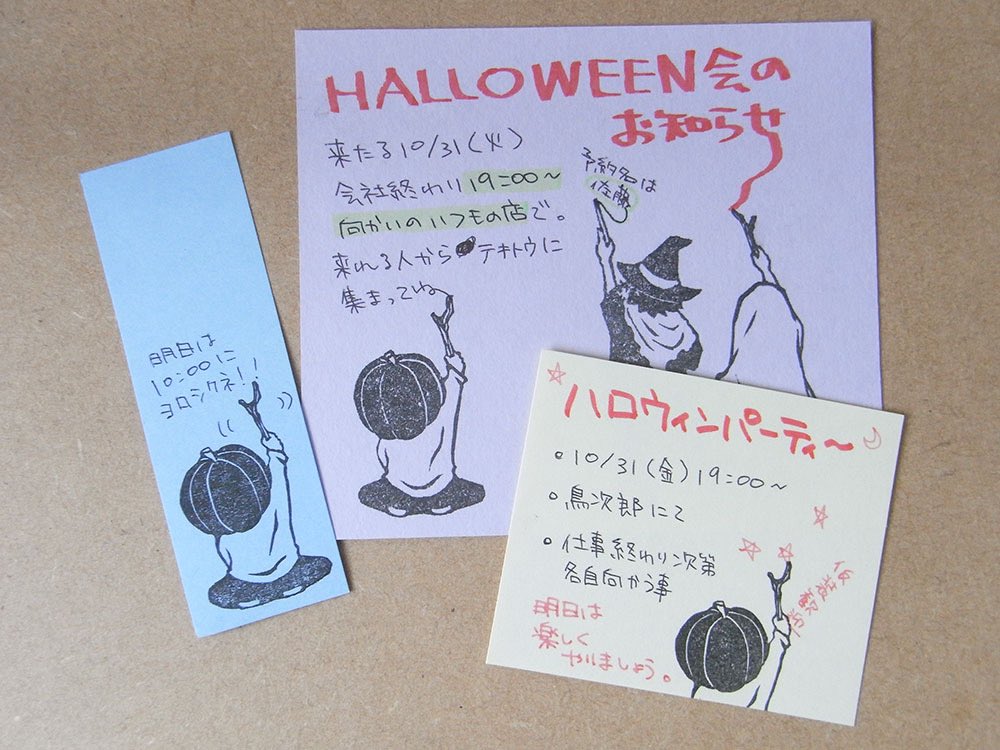 HALLOWEEN会の
お知らせ
来たる10/31(火)
会社終わり19:00〜
向かいのいつもの店で。
来れる人からテキトウに
集まってね
予約名は
佐藤
明日は
10:00に
ヨロシクネ!!
ハロウィンパーティ〜
10/31(金)19:00〜
鳥次郎にて
仕事終わり次第
各自向かう事
明日は
楽しく
やりましょう。